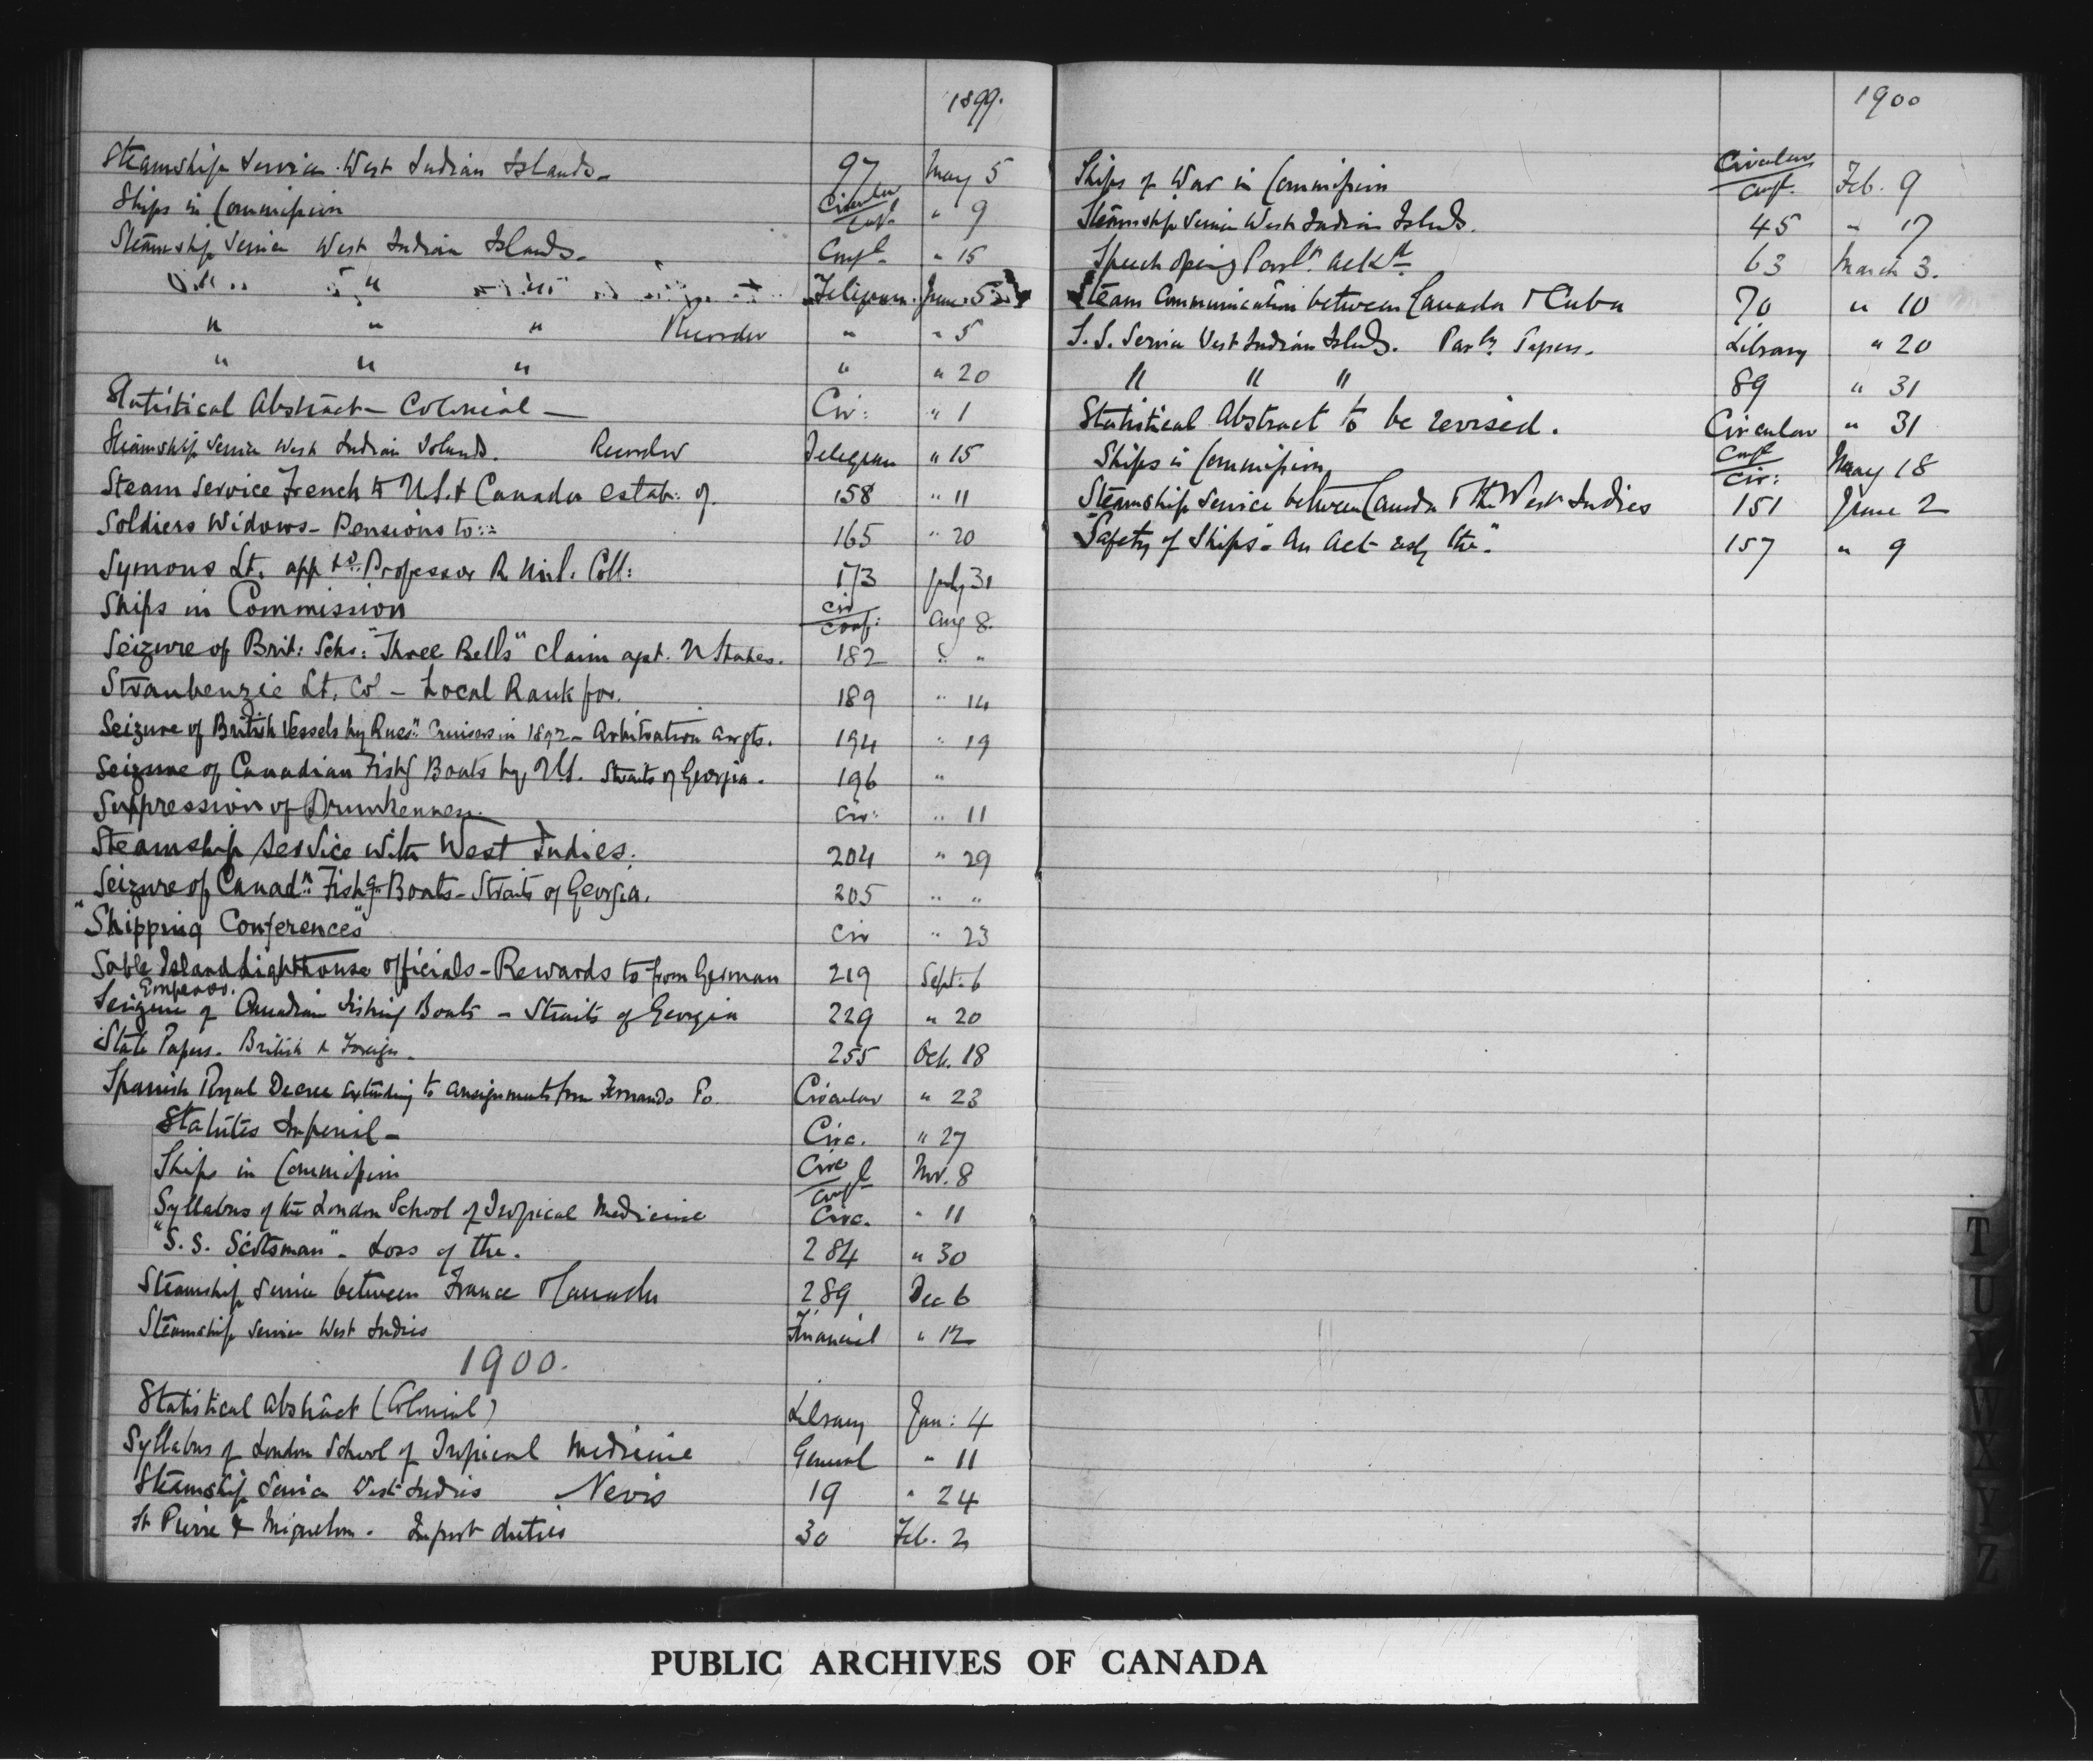 1899.
Steamship Service West Indian Islands - 97 May 5
Ships in Commission Circular Conf. " 9
Steamship Service West Indian Islands - Confl. " 15
" " " Telegram June 5
" " " Recorder " " 5
" " " " " 20
Statistical Abstract - Colonial - Cir: " 1
Steamship Service West Indian Islands. Recorder Telegram " 15
Steam Service French to U.S. & Canada estab: of. 158 " 11
Soldiers Widows - Pensions to: 165 " 20
Symons Lt. app td. Professor R. Mil. Coll: 173 July 31
Ships in Commission Cir conf: Aug 8.
Seizure of Brit: Schr: "Three Bells" claim agst. U States. 182 " "
Straubenzie Lt. Col - Local Rank for. 189 " 14
Seizure of British Vessels by Russn. Cruisers in 1892 - Arbitration Arrgts. 194 " 19
Seizure of Canadian Fishg Boats by U.S. Straits of Georgia. 196 "
Suppression of Drunkenness. Cir: " 11
Steamship Service with West Indies. 204 " 29
Seizure of Canadn. Fishg. Boats - Straits of Georgia. 205 " "
"Shipping Conferences" Cir " 23
Sable Island Lighthouse officials - Rewards to from German 219 Sept. 6
Emperor.
Seizure of Canadian Fishing Boats - Straits of Georgia 229 " 20
State Papers. British & Foreign. 255 Oct. 18
Spanish Royal Decree extending to consignments from Fernando Po Circular " 23
Statutes Imperial - Circ. " 27
Ships in Commission Circ confl Nov. 8
Syllabus of the London School of Tropical Medicine Circ. " 11
"S.S. Scotsman" - Loss of the. 284 " 30
Steamship Service between France & Canada 289 Dec 6
Steamship Service West Indies Financial " 12
1900.
Statistical Abstract (Colonial) Library Jan: 4
Syllabus of London School of Tropical Medicine General " 11
Steamship Service West Indies Nevis 19 " 24
St Pierre & Miquelon. Import duties 30 Feb. 2
1900
Ships of War in Commission Circular Conf. Feb. 9
Steamship Service West Indian Islands. 45 " 17
Speech opening Parlt. ackd 63 March 3.
Steam Communication between Canada & Cuba 70 " 10
S.S. Service West Indian Islands. Parly. Papers. Library " 20
" " " 89 " 31
Statistical Abstract to be revised. Circular " 31
Ships in Commission Conf Cir: May 18
Steamship Service between Canada & the West Indies 151 June 2
"Safety of Ships" An Act the" 157 " 9
T
U
V
W
X
Y
Z
PUBLIC ARCHIVES OF CANADA